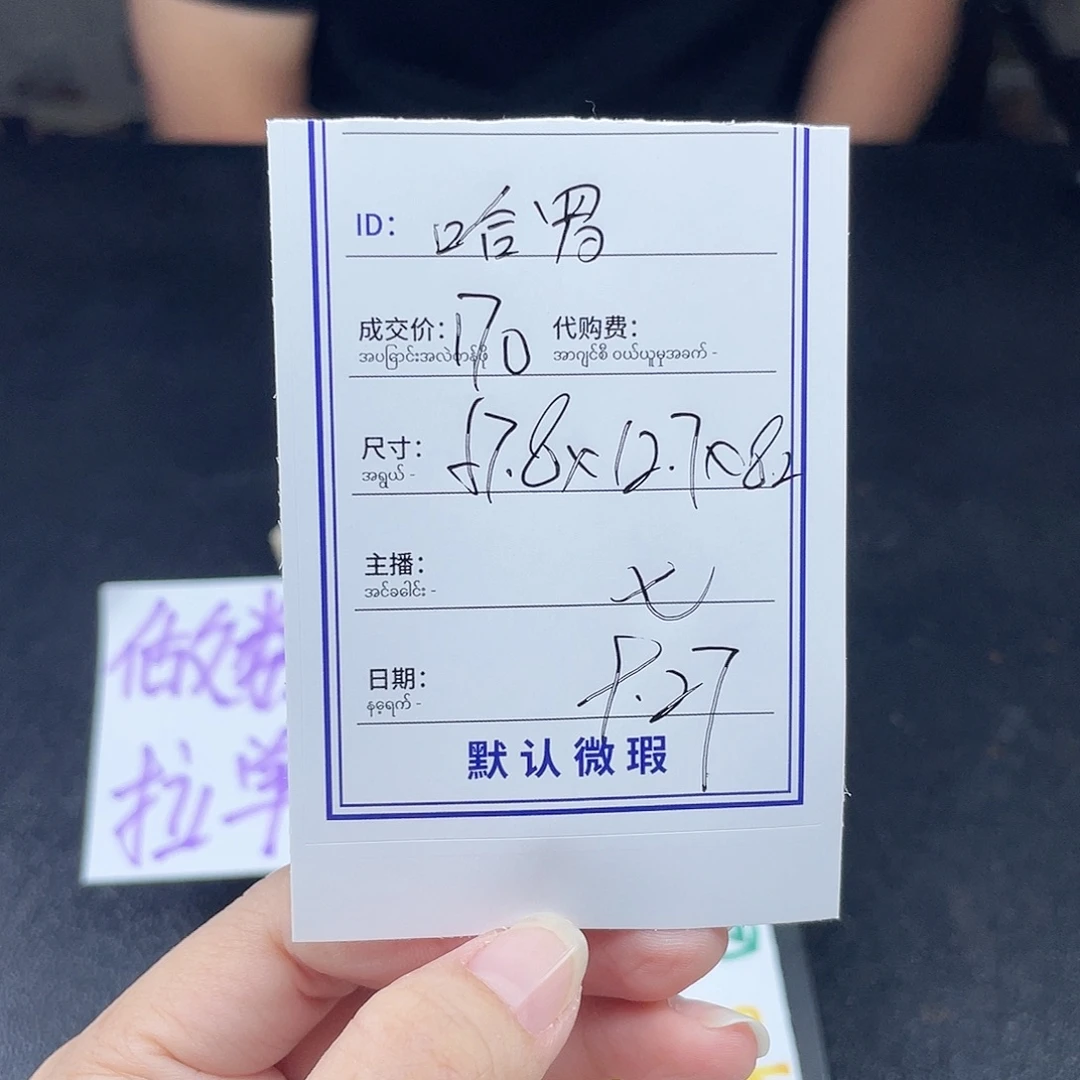 ID: 哈
成交价: 170 代购费:
အပြောင်းအလဲတန်ဖိုး အာဂျင်စီ ဝယ်ယူမှုအခက် -
尺寸: 57.8x12.7x8.2
အရွယ် -
主播: 七
အင်ခေါင်း -
日期: 9.27
နေ့ရက် -
默认微瑕
做数
拉单